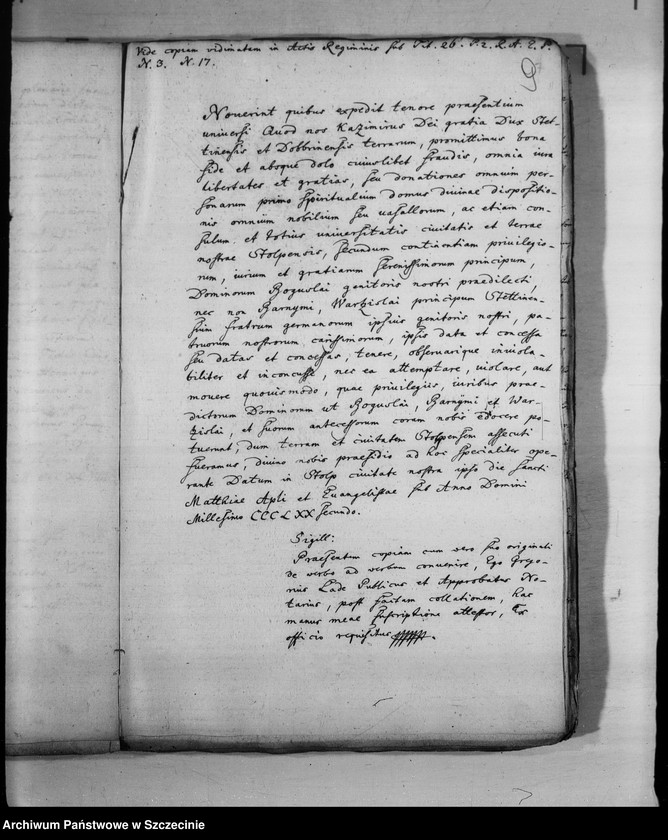 Vide copiam vidimatam in Actis Regiminis sub Tit. 26. P. 2. R. A. E. P.
N. 3. N. 17.
9
Noverint quibus expedit tenore praesentium
universi Quod nos Kazimirus Dei gratia Dux Stet-
tinensis et Dobbrinensis terrarum, promittimus bona
fide et absque dolo cuiuslibet fraudis, omnia iura
libertates et gratias, seu donationes omnium per-
sonarum primo spiritualium domus divinae dispositio-
nis omnium nobilium seu vasallorum, ac etiam con-
sulum et totius universitatis civitatis et terrae
nostrae Stolpensis, secundum continentiam privilegio-
rum, iurium et gratiarum serenissimorum principum,
Dominorum Boguslai genitoris nostri praedilecti,
nec non Barnymi, Wartzislai principum Stettinen-
sium fratrum germanorum ipsius genitoris nostri, pa-
truorum nostrorum carissimorum, ipsis data et concessa
seu datas et concessas, tenere, observarique inviola-
biliter et inconcusse, nec ea attemptare, violare, aut
movere quovismodo, quae privilegiis, iuribus prae-
dictorum Dominorum ut Boguslai, Barnymi et War-
tzislai, et suorum antecessorum coram nobis edocere po-
tuerunt, dum terram et civitatem Stolpensem assecuti
fueramus, divino nobis praesidio ad hoc specialiter ope-
rante Datum in Stolp civitate nostra ipso die Sancti
Matthiae Apli et Evangelistae sub Anno Domini
Millesimo CCCLXX secundo.
Sigill:
Praesentem copiam cum vero suo originali
de verbo ad verbum convenire, Ego Grego-
rius Lade Publicus et Approbatus No-
tarius, post factam collationem, hac
manus meae subscriptione attestor, Ex
officio requisitus
Archiwum Państwowe w Szczecinie